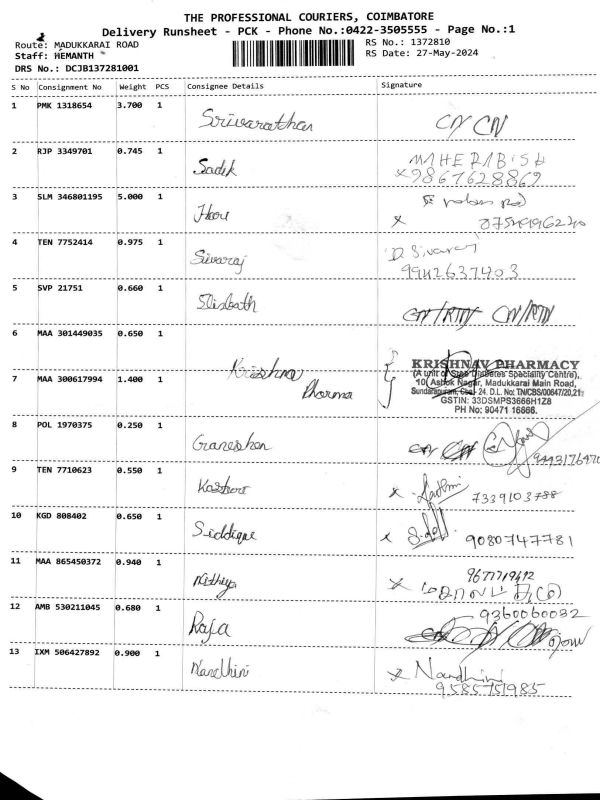 THE PROFESSIONAL COURIERS, COIMBATORE
Delivery Runsheet - PCK - Phone No.:0422-3505555 - Page No.:1
Route: MADUKKARAI ROAD
RS No.: 1372810
Staff: HEMANTH
RS Date: 27-May-2024
DRS No.: DCJB137281001
S No Consignment No Weight PCS Consignee Details Signature
1 PMK 1318654 3.700 1 Srivarathan CN CN
2 RJP 3349701 0.745 1 Sadik
x 9867628869
3 SLM 346801195 5.000 1 Hari
x
4 TEN 7752414 0.975 1 Sivaraj D. Sivaraj
9942637403
5 SVP 21751 0.660 1 CN/RTN CN/RTN
6 MAA 301449035 0.650 1
7 MAA 300617994 1.400 1 Krishna Pharma
KRISHNAV PHARMACY
(A unit of Siva Diabetes Speciality Centre),
10, Ashok Nagar, Madukkarai Main Road,
Sundarapuram, Cbe- 24. D.L. No: TN/CBS/00647/20,21
GSTIN: 33DSMPS3666H1Z8
PH No: 90471 16666.
8 POL 1970375 0.250 1 Ganeshan CN
9 TEN 7710623 0.550 1 x 7339103788
10 KGD 808402 0.650 1 Siddique x 9080747781
11 MAA 865450372 0.940 1 Nithya x 9677719412
12 AMB 530211045 0.680 1 Raja 9360060032
13 IXM 506427892 0.900 1 Nandhini x Nandhini
9585751985